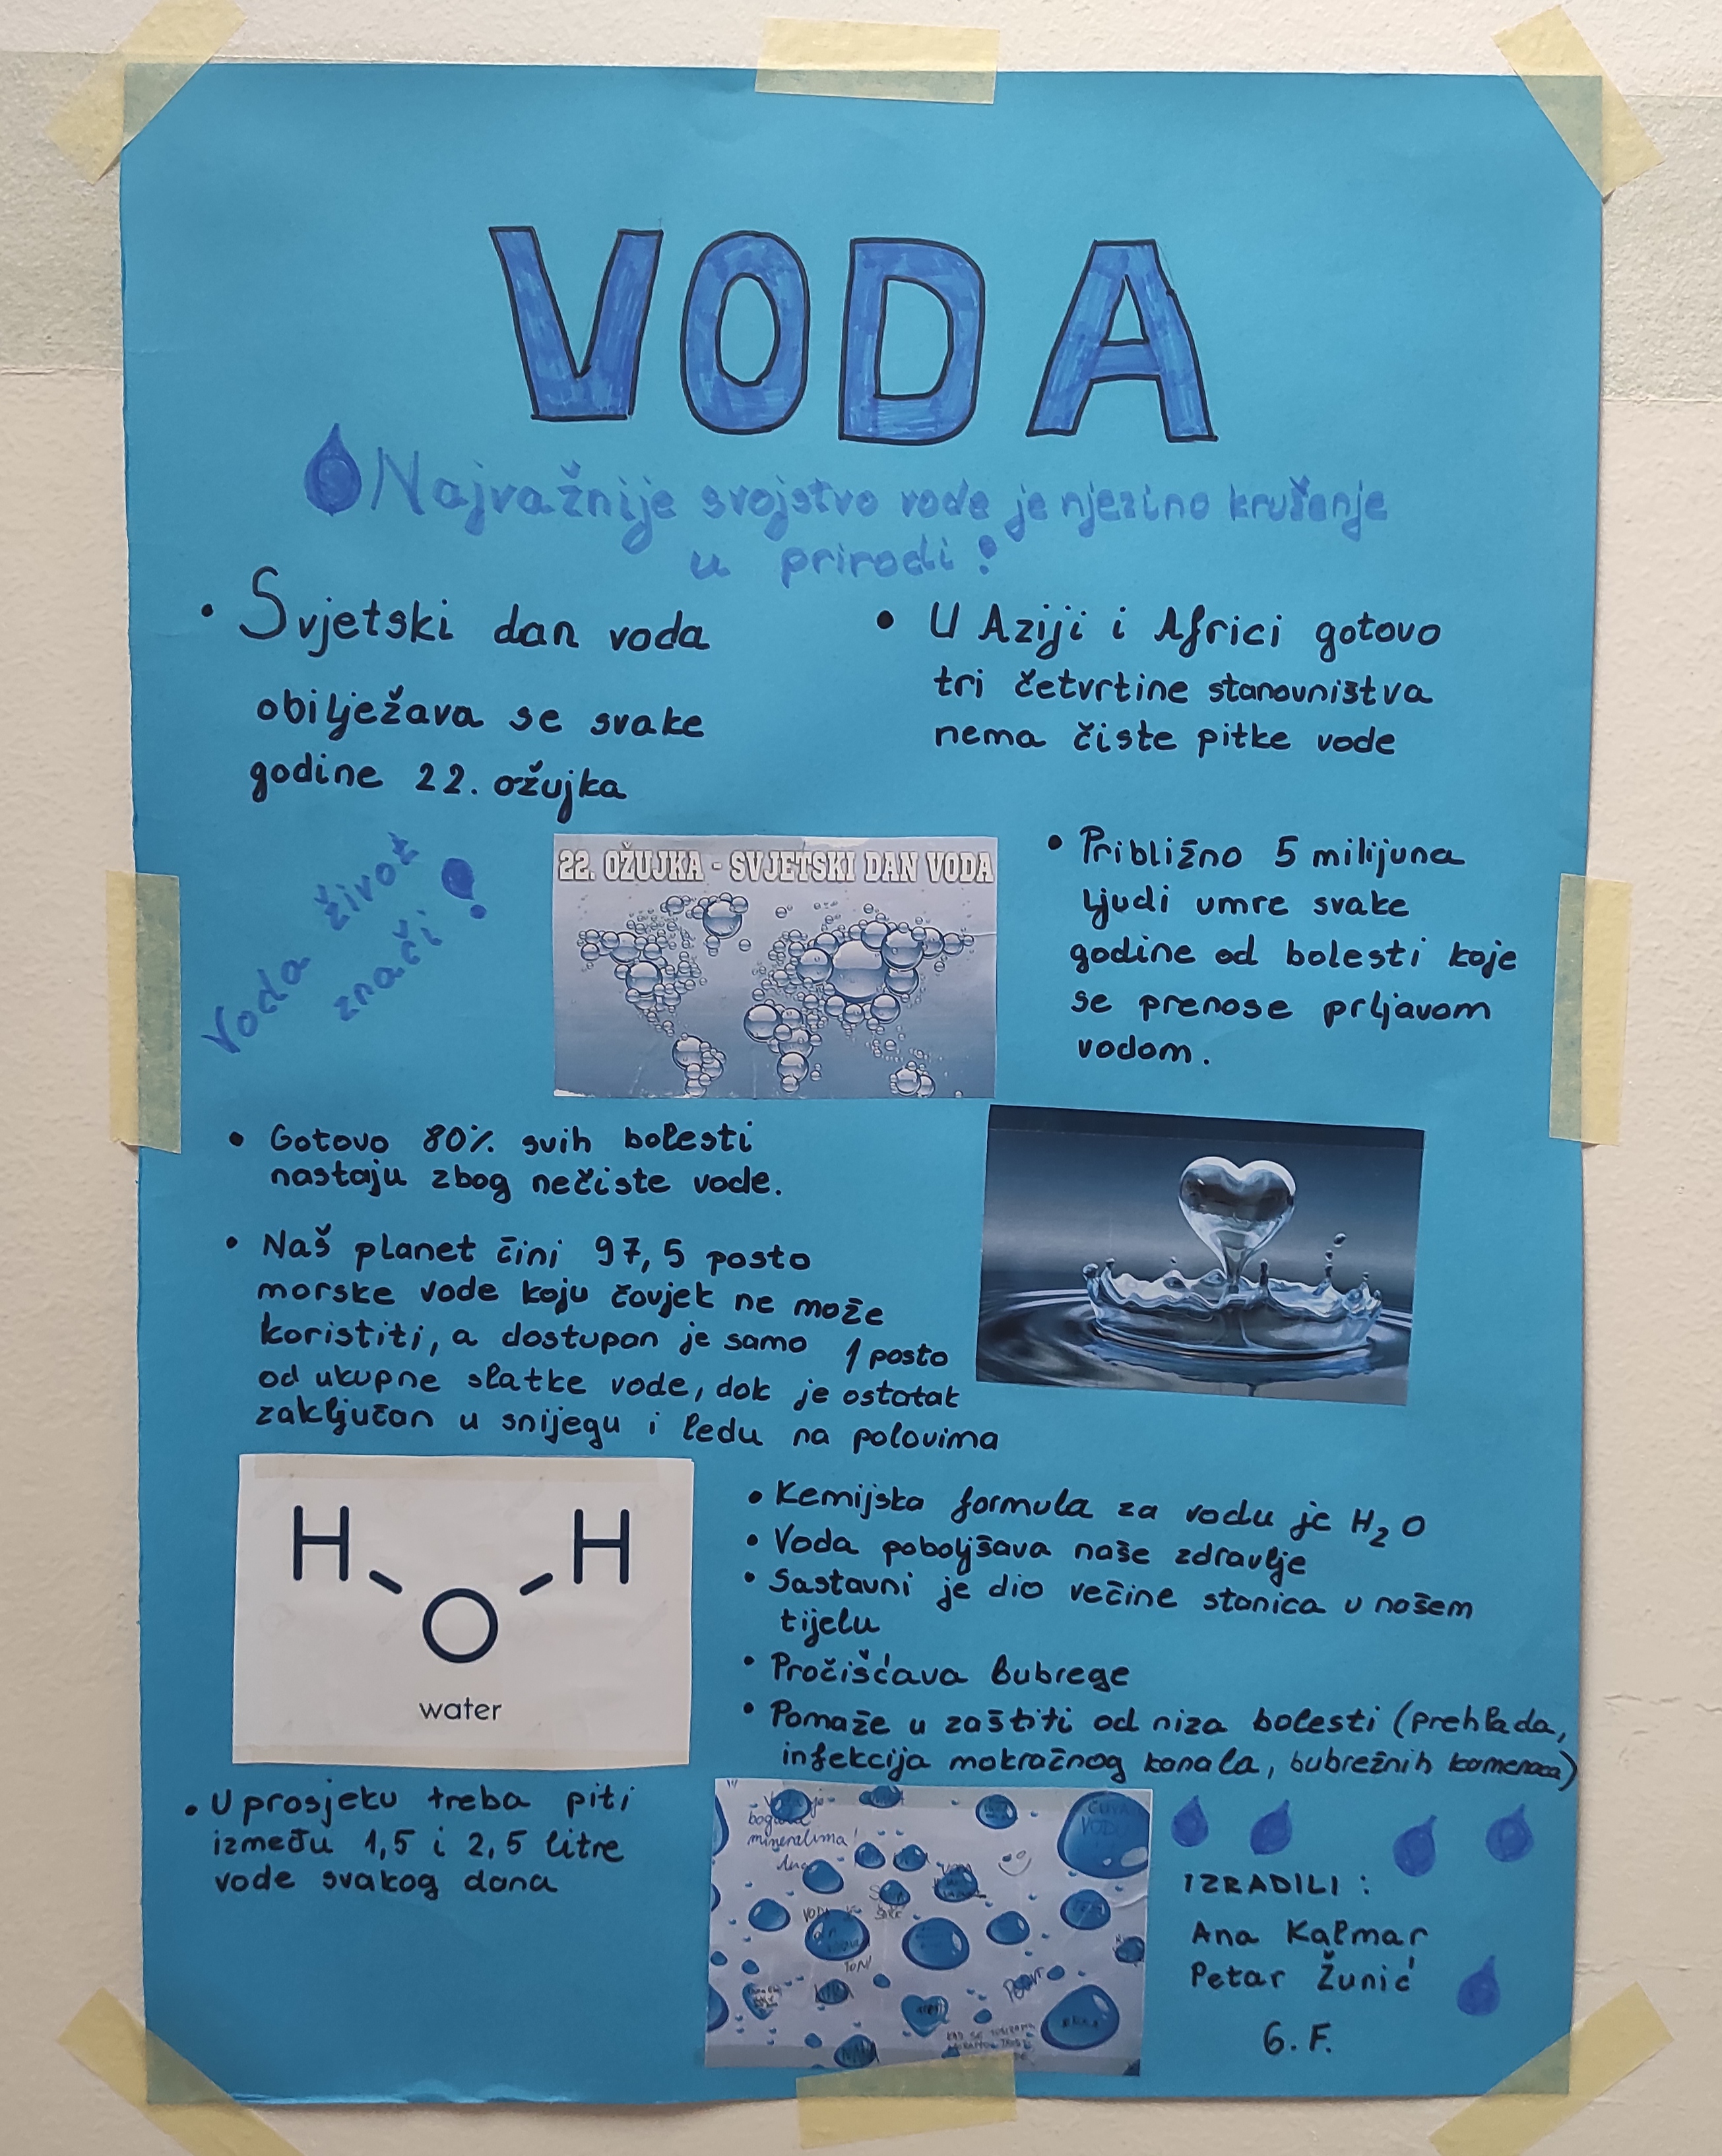 VODA
Najvažnije svojstvo vode je njezino kruženje
u prirodi!
• Svjetski dan voda
obilježava se svake
godine 22. ožujka
• U Aziji i Africi gotovo
tri četvrtine stanovništva
nema čiste pitke vode
Voda život
znači!
22. OŽUJKA - SVJETSKI DAN VODA
• Približno 5 milijuna
ljudi umre svake
godine od bolesti koje
se prenose prljavom
vodom.
• Gotovo 80% svih bolesti
nastaju zbog nečiste vode.
• Naš planet čini 97,5 posto
morske vode koju čovjek ne može
koristiti, a dostupan je samo 1 posto
od ukupne slatke vode, dok je ostatak
zaključan u snijegu i ledu na polovima
H H
O
water
• Kemijska formula za vodu je H₂O
• Voda poboljšava naše zdravlje
• Sastavni je dio većine stanica u našem
tijelu
• Pročišćava bubrege
• Pomaže u zaštiti od niza bolesti (prehlada,
infekcija mokraćnog kanala, bubrežnih kamenaca)
• U prosjeku treba piti
između 1,5 i 2,5 litre
vode svakog dana
bogata
mineralima!
ČUVAJ
VODU
IZRADILI:
Ana Kalmar
Petar Žunić
6. F.